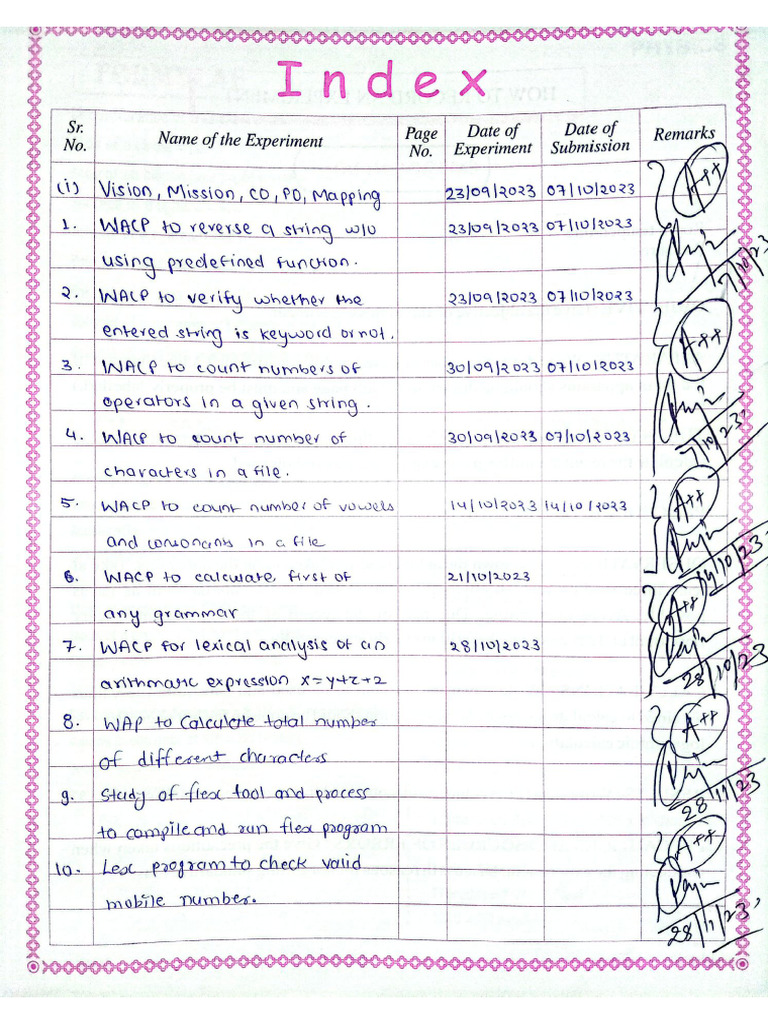 Index
Sr. No. Name of the Experiment Page No. Date of Experiment Date of Submission Remarks
(i) Vision, Mission, CO, PO, Mapping 23/09/2023 07/10/2023 A++
1. WACP to reverse a string w/o 23/09/2023 07/10/2023
using predefined function. 7/10/23
2. WACP to verify whether the 23/09/2023 07/10/2023
entered string is keyword or not. A++
3. WACP to count numbers of 30/09/2023 07/10/2023
operators in a given string.
4. WACP to count number of 30/09/2023 07/10/2023 7/10/23
characters in a file.
5. WACP to count number of vowels 14/10/2023 14/10/2023 A++
and consonants in a file 14/10/23
6. WACP to calculate first of 21/10/2023
any grammar A++
7. WACP for lexical analysis of an 28/10/2023
arithmatic expression x=y+z+2 28/10/23
8. WAP to Calculate total number A++
of different characters
9. Study of flex tool and process 28/11/23
to compile and run flex program A++
10. Lex program to check valid
mobile number. 28/11/23